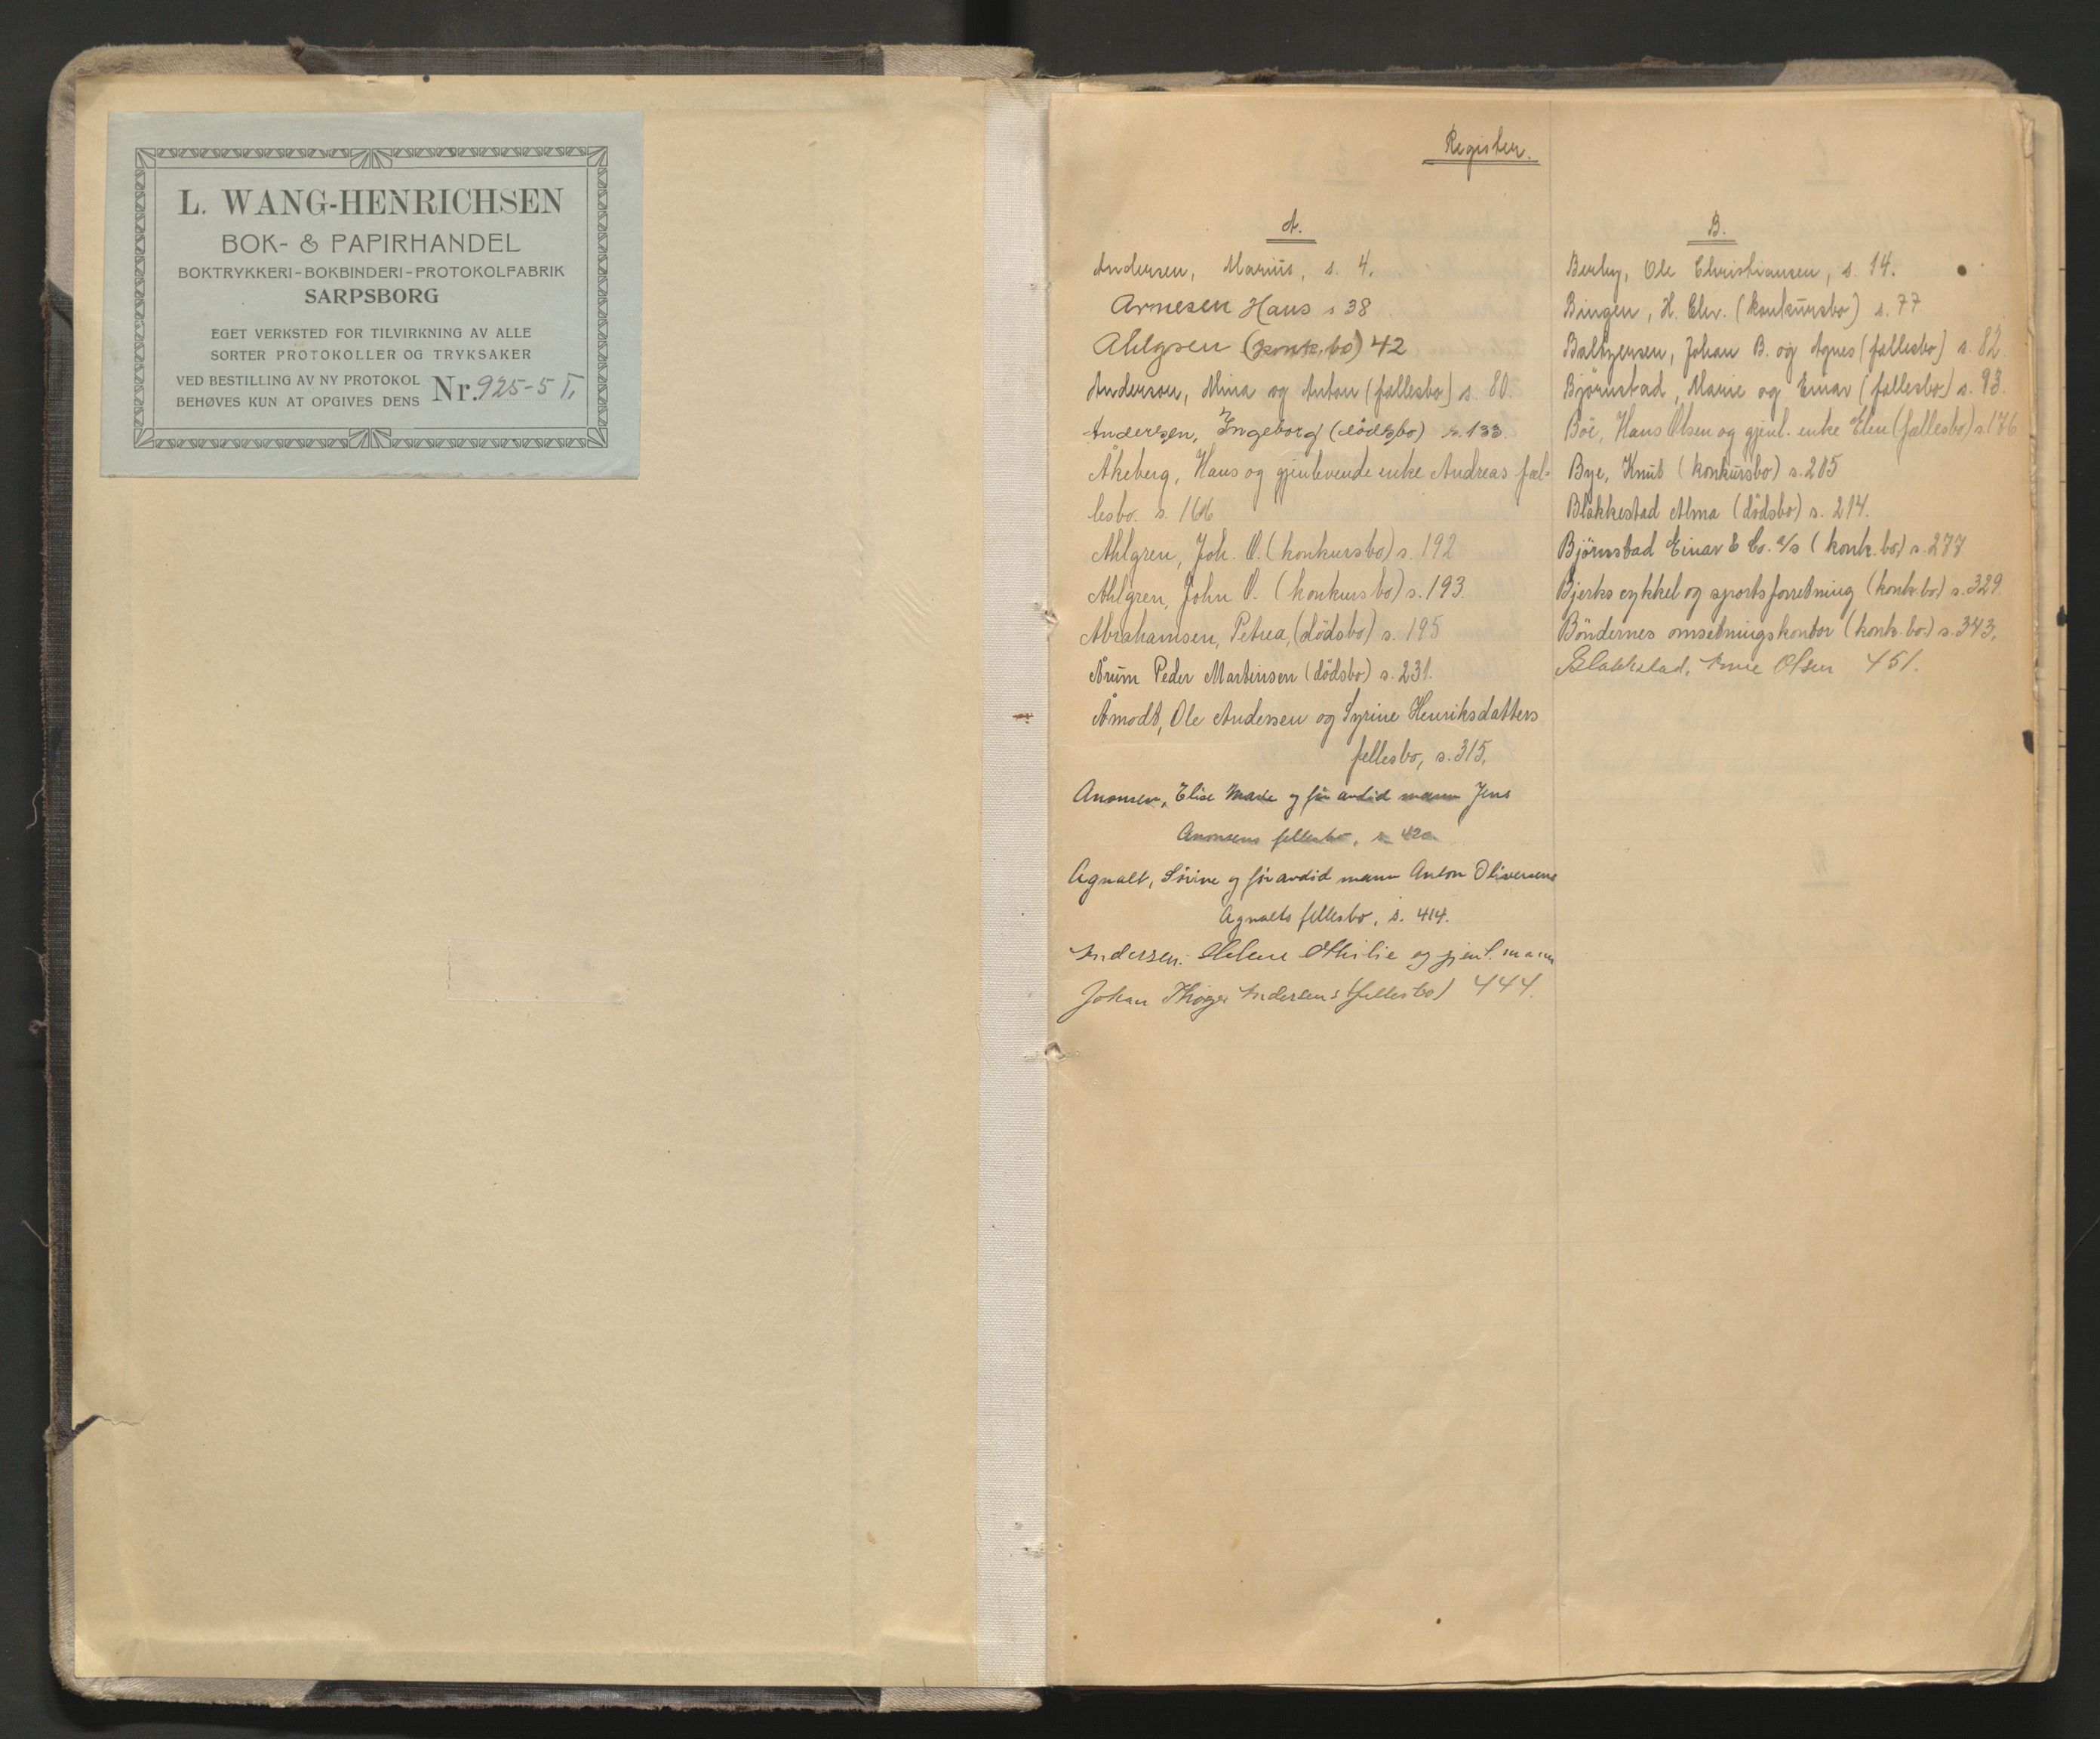 L. WANG-HENRICHSEN
BOK- & PAPIRHANDEL
BOKTRYKKERI-BOKBINDERI-PROTOKOLFABRIK
SARPSBORG
EGET VERKSTED FOR TILVIRKNING AV ALLE
SORTER PROTOKOLLER OG TRYKSAKER
VED BESTILLING AV NY PROTOKOL
BEHØVES KUN AT OPGIVES DENS
Nr. 925-5 I,
Register.
A.
Andersen, Marius, s. 4.
Arnesen Hans s 38
Ahlgren (konk.bo) 42
Anderson, Mina og Anton (fællesbo) s. 80.
Andersen, Ingeborg (dödsbo) s. 133
Åkeberg, Hans og gjenlevende enke Andreas fæl-
lesbo. s. 166
Ahlgren, Joh. O. (konkursbo) s. 192
Ahlgren, John O. (konkursbo) s. 193.
Abrahamsen, Petrea, (dödsbo) s. 195
Årum Peder Martinsen (dödsbo) s. 231.
Åmodt, Ole Andersen og Syrine Henriksdatters
fellesbo, s. 315.
Anonsen, Elise Marie og før avdød mann Jens
Anonsens fellesbo, s. 420.
Agnalt, Sörine og før avdød mann Anton Oliversens
Agnalts fellesbo, s. 414.
Andersen. Helene Othilie og gjenl. mann
Johan Andersens (fellesbo) 444.
B.
Berby, Ole Christiansen, s. 14.
Bingen, H. Chr. (konkursbo) s. 77
Baltzersen, Johan B. og Agnes (fællesbo) s. 82.
Björnstad, Marie og Einar (fællesbo) s. 93.
Böe, Hans Olsen og gjenl. enke Elen (fællesbo) s 176
Bye, Knut (konkursbo) s. 205
Blakkestad Alma (dödsbo) s. 214.
Björnstad Einar & Co. a/s (konk. bo) s. 277
Bjerks cykkel og sportsforretning (konk. bo) s. 329.
Böndernes omsetningskontor (konk. bo.) s. 343.
Blakkestad, Anne Olsen 451.